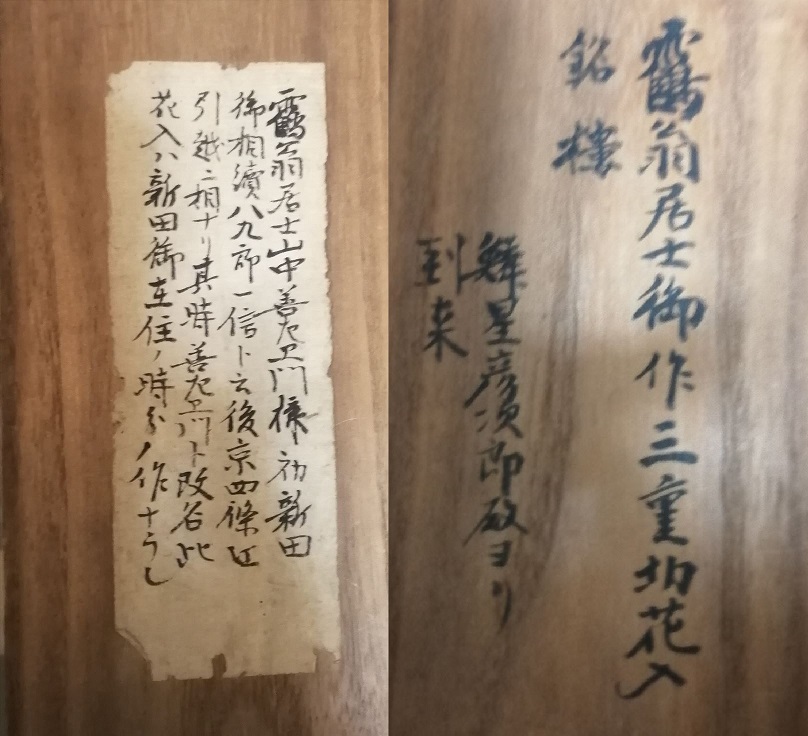 靏翁居士山中善左エ門様初新田
御相續八九郎一信ト云後京四條江
引越ニ相ナリ其時善左エ門ト改名此
花入ハ新田御在住ノ時分ノ作ナラし
靏翁居士御作三重切花入
銘 樓
星彦次郎殿ヨリ
到来